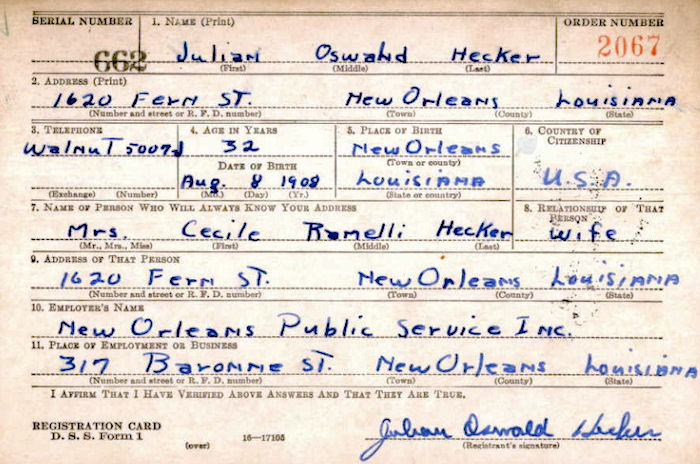 SERIAL NUMBER 1. NAME (Print) ORDER NUMBER
662 Julian Oswald Hecker 2067
(First) (Middle) (Last)
2. ADDRESS (Print)
1620 Fern St. New Orleans Louisiana
(Number and street or R. F. D. number) (Town) (County) (State)
3. TELEPHONE 4. AGE IN YEARS 5. PLACE OF BIRTH 6. COUNTRY OF CITIZENSHIP
Walnut 5007J 32 New Orleans
DATE OF BIRTH (Town or county)
Aug. 8 1908 Louisiana U.S.A.
(Exchange) (Number) (Mo.) (Day) (Yr.) (State or country)
7. NAME OF PERSON WHO WILL ALWAYS KNOW YOUR ADDRESS 8. RELATIONSHIP OF THAT PERSON
Mrs. Cecile Ramelli Hecker wife
(Mr., Mrs., Miss) (First) (Middle) (Last)
9. ADDRESS OF THAT PERSON
1620 Fern St. New Orleans Louisiana
(Number and street or R. F. D. number) (Town) (County) (State)
10. EMPLOYER'S NAME
New Orleans Public Service Inc.
11. PLACE OF EMPLOYMENT OR BUSINESS
317 Baronne St. New Orleans Louisiana
(Number and street or R. F. D. number) (Town) (County) (State)
I AFFIRM THAT I HAVE VERIFIED ABOVE ANSWERS AND THAT THEY ARE TRUE.
REGISTRATION CARD
D. S. S. Form 1 (over) 16—17105 Julian Oswald Hecker
(Registrant's signature)